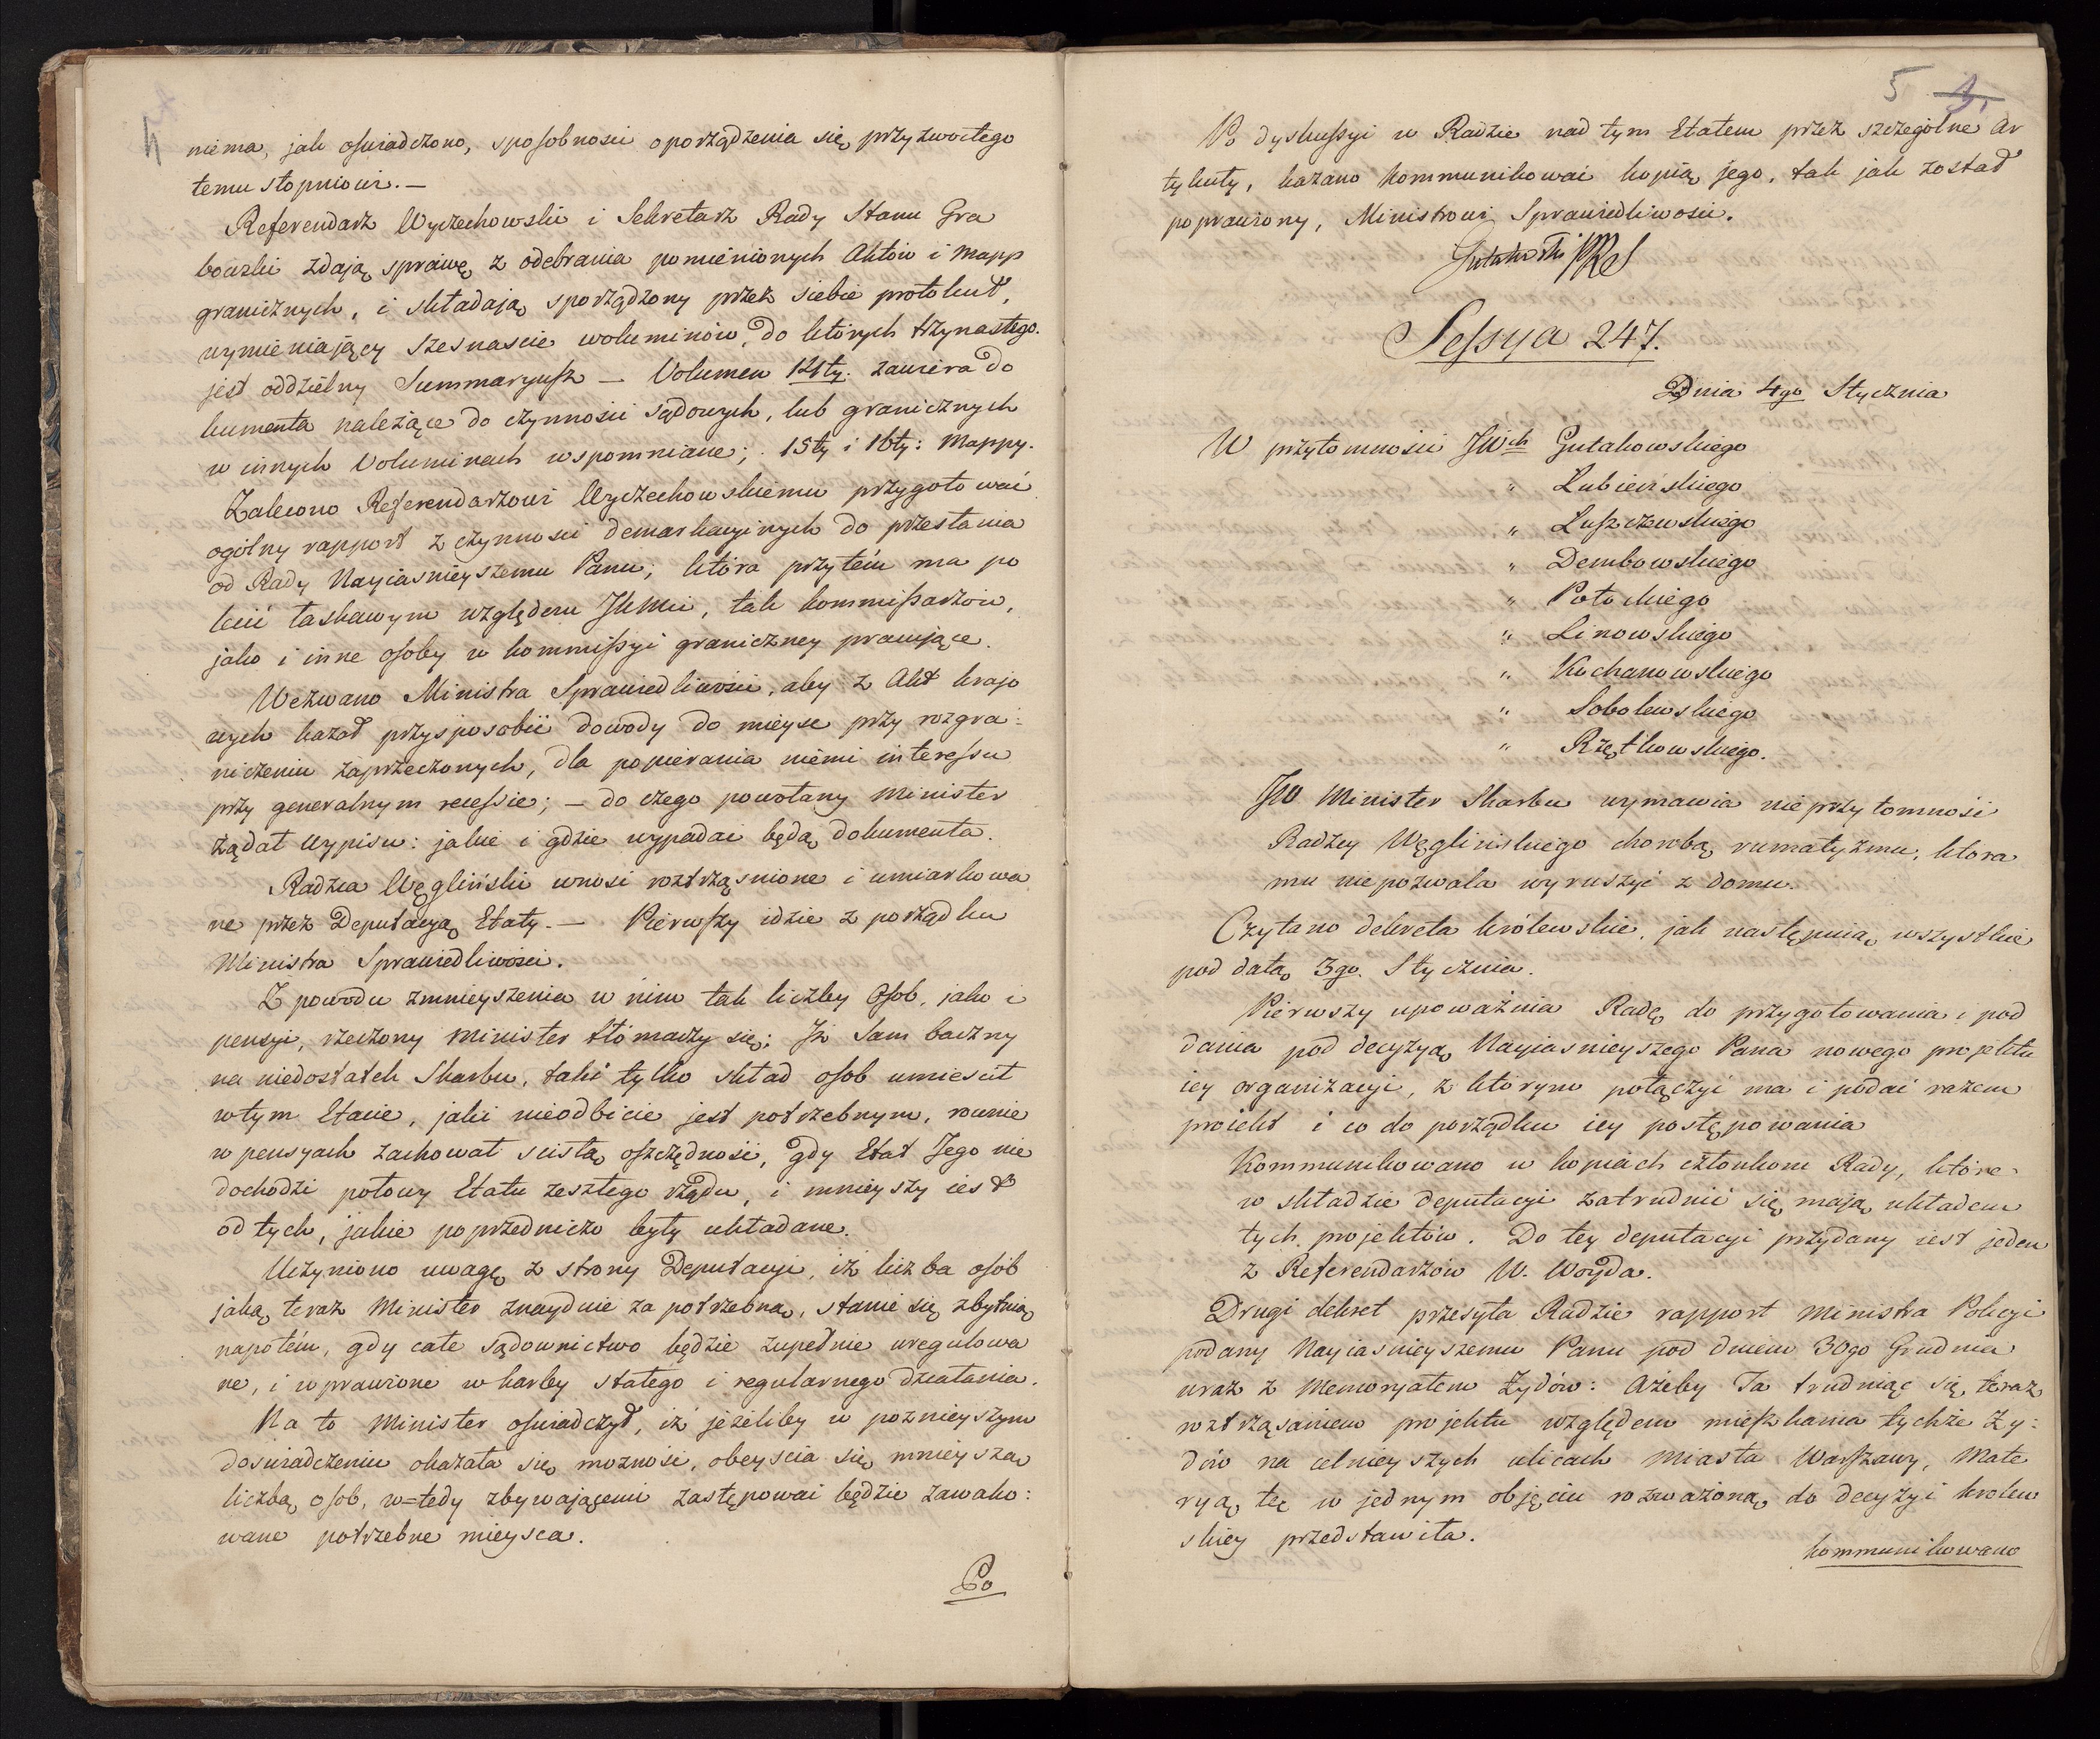 4
niema, jak ośwíadczono, sposobności oporządzenia się przyzwoitego
temu stopniowi. —
Referendarz Wyczechowski i Sekretarz Rady Stanu Gra
bowski zdają sprawę z odebrania pomienionych Aktów i Mapp
granicznych, i składają sporządzony przez siebie protokuł,
wymieniający szesnaście woluminów, do których trzynastego
jest oddzielny Summaryusz — Volumen 14ty. zawiera do
kumenta należące do czynności sądowych, lub granicznych
w innych Voluminach wspomniane; 15ty i 16ty: Mappy.
Zalecono Referendarzowi Wyczechowskiemu przygotować
ogólny rapport z czynności demarkacyinych do przesłania
od Rady Nayiaśnieyszemu Panu; która przytém ma po
lecić łaskawym względem JKMci, tak kommissarzów,
jako i inne osoby w kommissyi graniczney pracujące.
Wezwano Ministra Sprawiedliwości, aby z Akt krajo
wych kazał przysposobić dowody do mieysc przy rozgra-
niczeniu zaprzeczonych, dla popierania niémi interessu
przy generalnym recessie; — do czego powołany Minister
żądał wypisu: jakie i gdzie wypadać będą dokumenta.
Radzca Węgliński wnosi roztrząśnione i umiarkowa
ne przez Deputacyą Etaty. — Piérwszy idzie z porządku
Ministra Sprawiedliwości.
Z powodu zmnieyszenia w nim tak liczby osob, jako i
pensyi, rzeczony Minister tłómaczy się: Iż sam baczny
na niedostatek Skarbu, taki tylko skład osob umieścił
w tym Etacie, jaki nieodbicie jest potrzebnym, równie
w pensyach zachował ścisłą oszczędność, gdy Etat Jego nie
dochodzi połowy Etatu zeszłego rządu, i mnieyszy iest
od tych, jakie poprzedniczo były układane.
Uczyniono uwagę z strony Deputacyi, iż liczba osób
jaką teraz Minister znayduie za potrzebną, stanie się zbytnią
napotém, gdy całe sądownictwo będzie zupełnie uregulowa
ne, i wprawione w karby stałego i regularnego działania.
Na to Minister oświadczył, iż jeżeliby w poznieyszym
doświadczeniu okazała się możność, obeyścia się mnieyszą
liczbą osob, w=tedy zbywającemi zastępować będzie zawako:
wane potrzebne mieysca.
Po
5 3.
Po dyskussyi w Radzie nad tym Etatem przez szczególne Ar
tykuły, kazano kommunikować kopią jego, tak jak został
poprawiony, Ministrowi Sprawiedliwości.
Gutakowski PRS
Sessya 247.
Dnia 4go Stycznia
W przytomności JWch Gutakowskiego
" Łubieńskiego
" Łuszczewskiego
" Dembowskiego
" Potockiego
" Linowskiego
" Kochanowskiego
" Sobolewskiego
" Rzętkowskiego.
JW Minister Skarbu wymawia nieprzytomność
Radzcy Węglińskiego chorobą rumatyzmu, która
mu niepozwala wyruszyć z domu.
Czytano dekreta królewskie, jak następuią wszystkie
pod datą 3go. Stycznia.
Piérwszy upoważnia Radę do przygotowania i pod
dania pod decyzyą Nayiaśnieyszego Pana nowego projektu
iey organizacyi, z którym połączyć ma i podać razem
proiekt i co do porządku iey postępowania
Kommunikowano w kopiach członkom Rady, które
w składzie deputacyi zatrudnić się mają układem
tych projektów. Do tey deputacyi przydany iest jeden
z Referendarzów W. Woyda.
Drugi dekret przesyła Radzie rapport Ministra Policyi
podany Nayiaśnieyszemu Panu pod dniem 30go Grudnia
wraz z Memoryałem Żydów: Ażeby Ta trudniąc się téraz
roztrząsaniem projektu względem mieszkania tychże Ży:
dów na celnieyszych ulicach Miasta Warszawy, Mate
ryą tę w jednym objęciu rozważoną do decyzyi królew
skiey przedstawiła.
kommunikowano